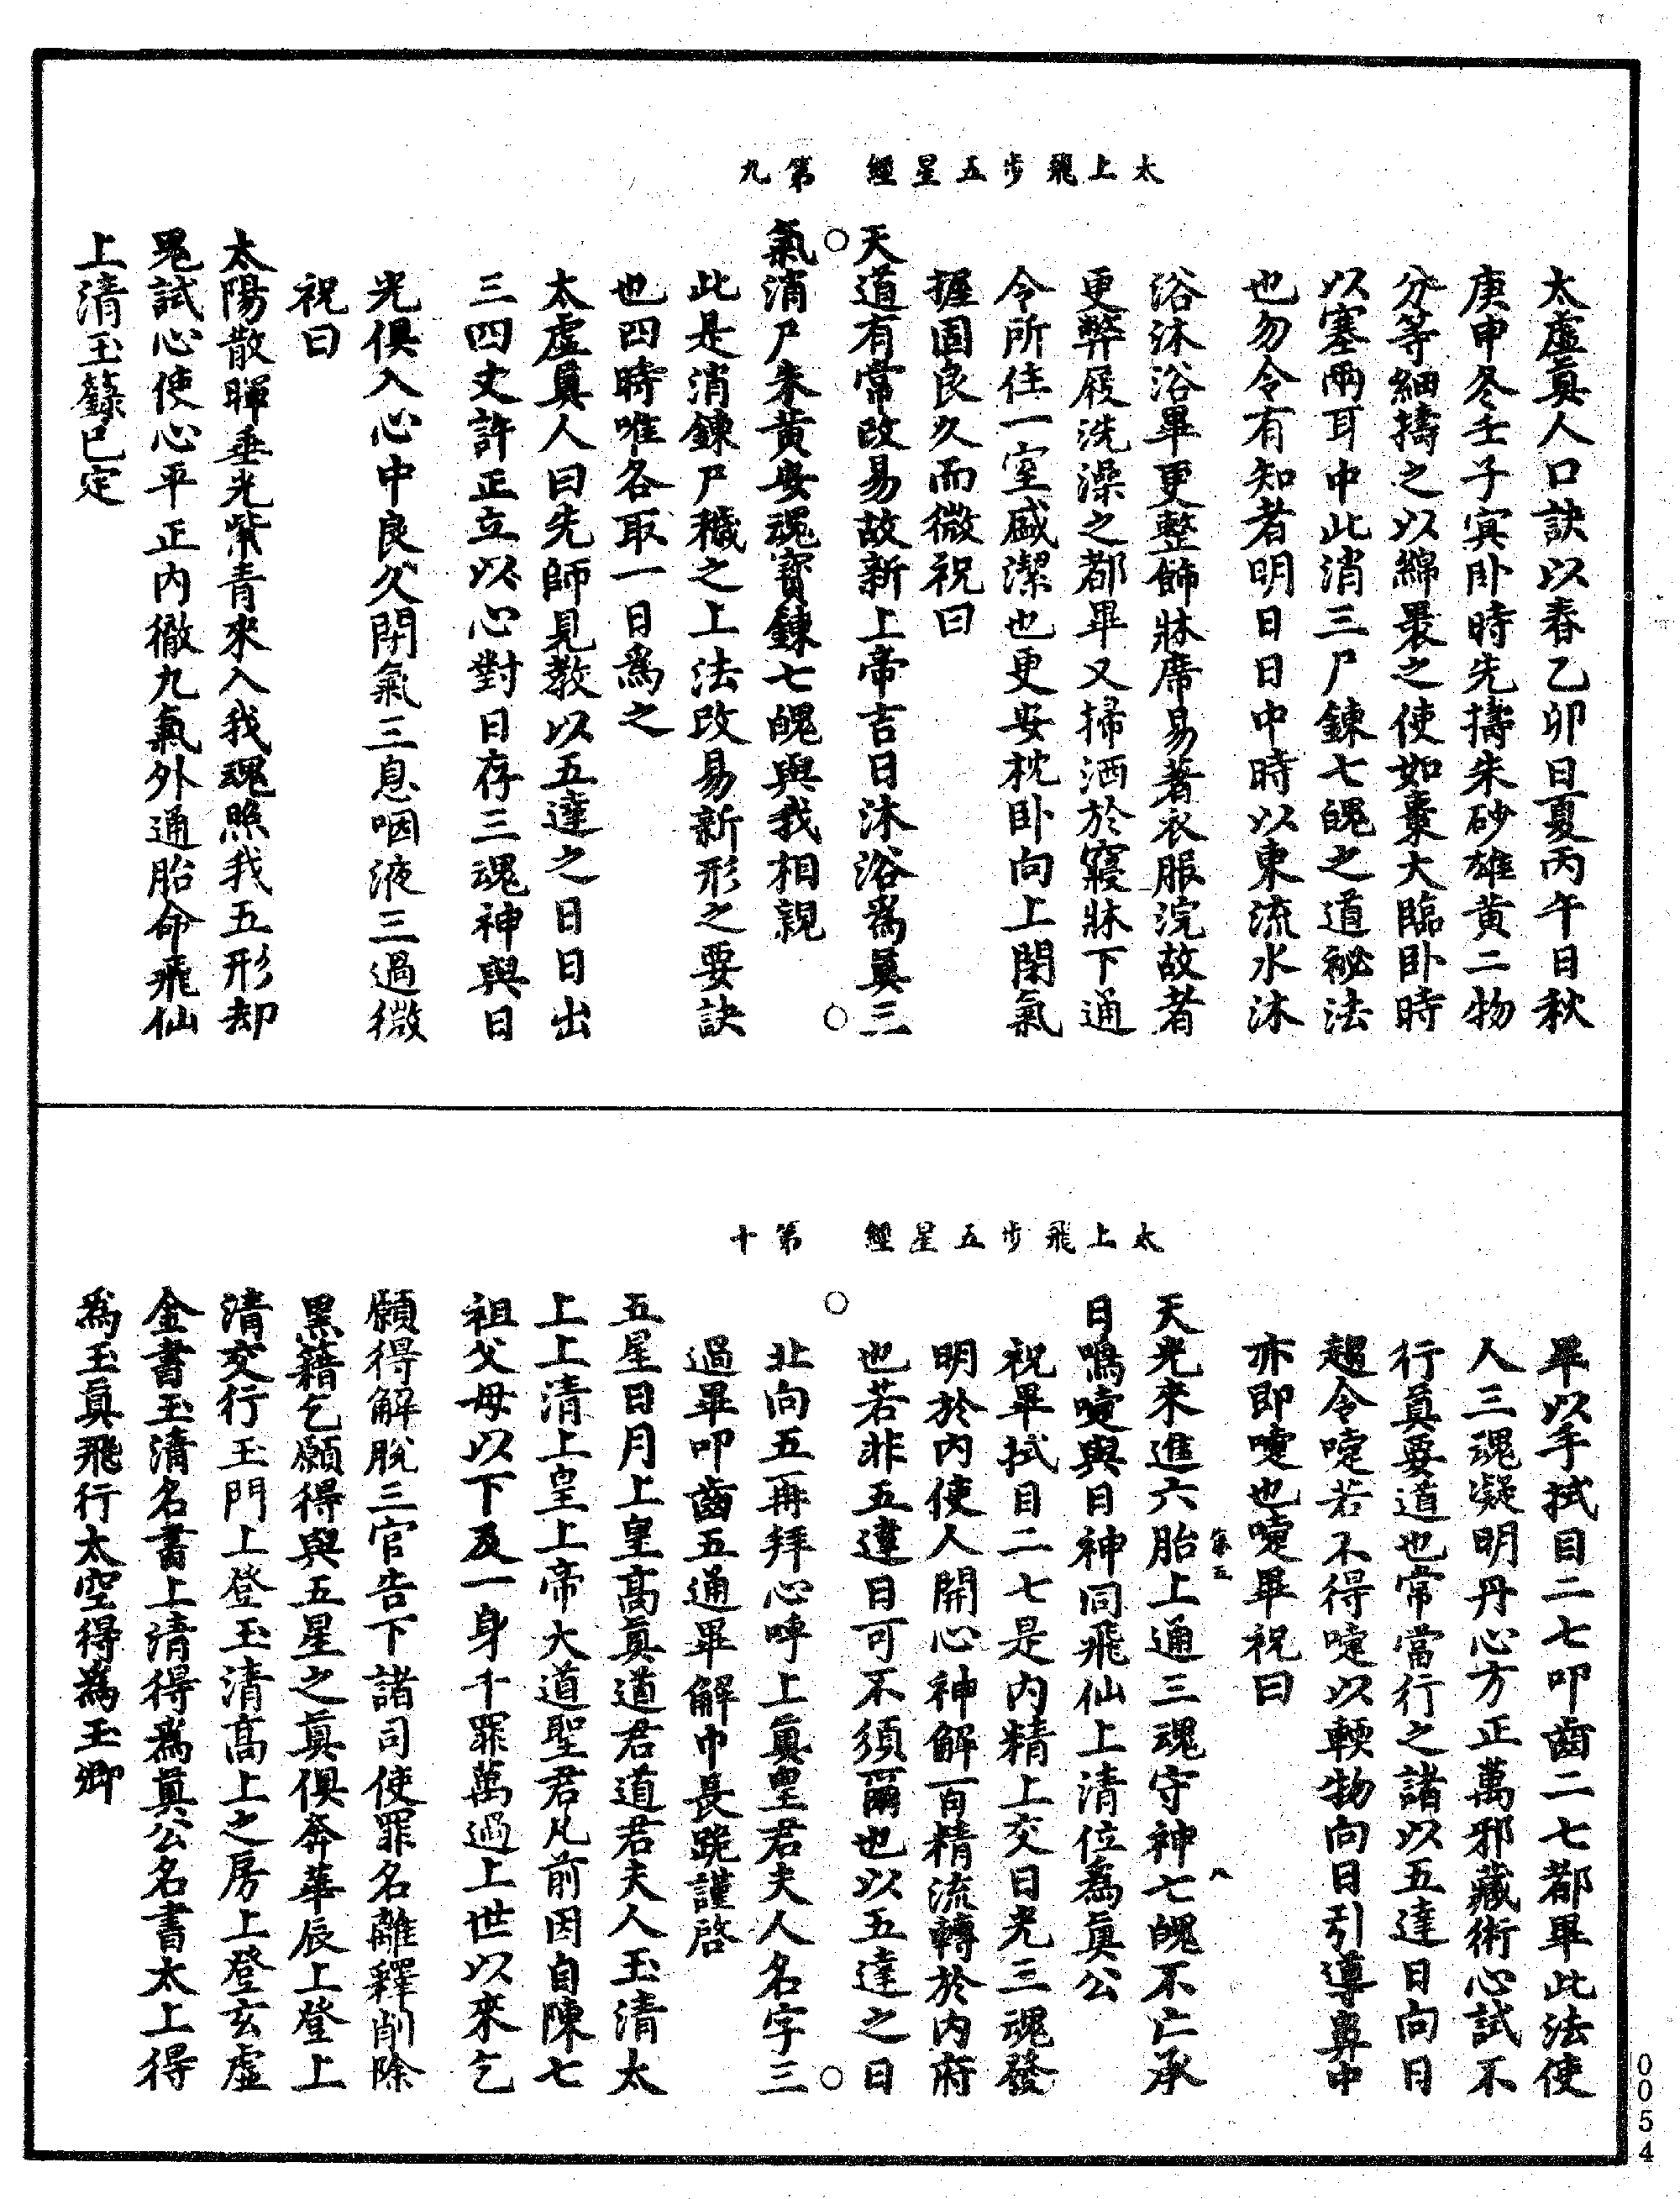 太上飛步五星經　第九
太虛眞人口訣以春乙卯日夏丙午日秋
庚申冬壬子㝠卧時先擣朱砂雄黃二物
分等細擣之以綿褁之使如棗大臨卧時
以塞兩耳中此消三尸鍊七魄之道祕法
也勿令有知者明日日中時以東流水沐
浴沐浴畢更整飾牀席易著衣服浣故者
更弊履洗澡之都畢又掃洒於寢牀下通
令所住一室盛潔也更安枕卧向上閉氣
握固良久而微祝曰
天道有常改易故新上帝吉日沐浴爲眞三
氣消尸朱黃安魂寶鍊七魄與我相親
此是消鍊尸穢之上法改易新形之要訣
也四時唯各取一日爲之
太虛眞人曰先師見教以五達之日日出
三四丈許正立以心對日存三魂神與日
光俱入心中良久閉氣三息咽液三過微
祝曰
太陽散暉垂光紫青來入我魂照我五形却
鬼試心使心平正內徹九氣外通胎命飛仙
上清玉籙已定
太上飛步五星經　第十
畢以手拭目二七叩齒二七都畢此法使
人三魂凝明丹心方正萬邪藏術心試不
行眞要道也常當行之諸以五達日向日
趨令嚏若不得嚏以輭物向日引導鼻中
亦即嚏也嚏畢祝曰
天光來進六胎上通三魂守神七魄不亡承
日鳴嚏與日神同飛仙上清位爲眞公
祝畢拭目二七是內精上交日光三魂發
明於內使人開心神解百精流轉於內府
也若非五達日可不須爾也以五達之日
北向五再拜心呼上眞皇君夫人名字三
過畢叩齒五通畢解巾長跪謹啓
五星日月上皇高眞道君道君夫人玉清太
上上清上皇上帝大道聖君凡前因自陳七
祖父母以下及一身千罪萬過上世以來乞
願得解脫三官告下諸司使罪名離釋削除
黑籍乞願得與五星之眞俱奔華辰上登上
清交行玉門上登玉清高上之房上登玄虛
金書玉清名書上清得爲眞公名書太上得
爲玉眞飛行太空得爲玉卿
0054